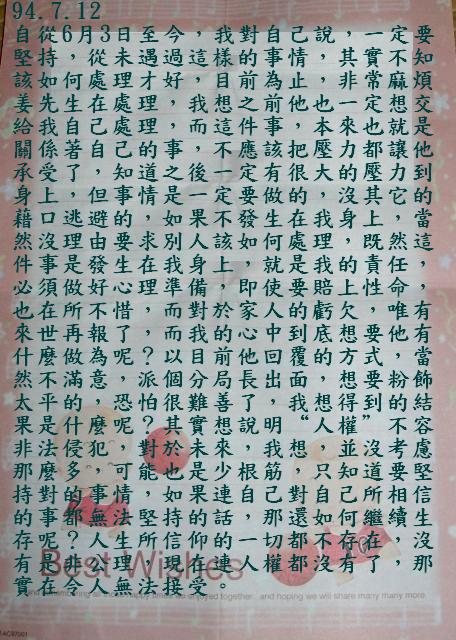 94.7.12
自從6月3日至今，我對自己說，一定要
堅持，從未遇過，這樣的事情，其實不知
該如何處理才好，目前為止，非常麻煩
姜先生在處理，我想之前他也一定想交
給我自己處理，而這件事，本來就是
關係著自己的事，不應該把壓力都讓他
承受了，但知道之後，一定有很大的壓力到
身上，逃避事情是不要做的，沒其它的
藉口，理由，如果發生在我身上，當
然沒理由要求別人該如何處理，既然這
件事是發生在我身上，就是我的責任，
必須做好心理準備，即使要賠上性命，
也在所不惜，而對於家人的虧欠，唯有
來世再報了，而我的心中到底想要他有
什麼做為呢？以目前他回覆的方式，當
然不滿意，派個分局長出面，想要粉飾
太平，恐怕很難善了，我想得到的結
果是什麼呢？其實想說明“人權”不容
非法侵犯，對於未來，我想，並沒考慮
那麼多，可能也是少根筋，只知道要堅
持對的事情，如果連自己對自己所相信
的事都無法堅持的話，那還如何繼續生
存呢？人生所信仰的一切都不存在，沒
有是非公理，現在連人權都沒有了，那
實在令人無法接受
Best Wishes